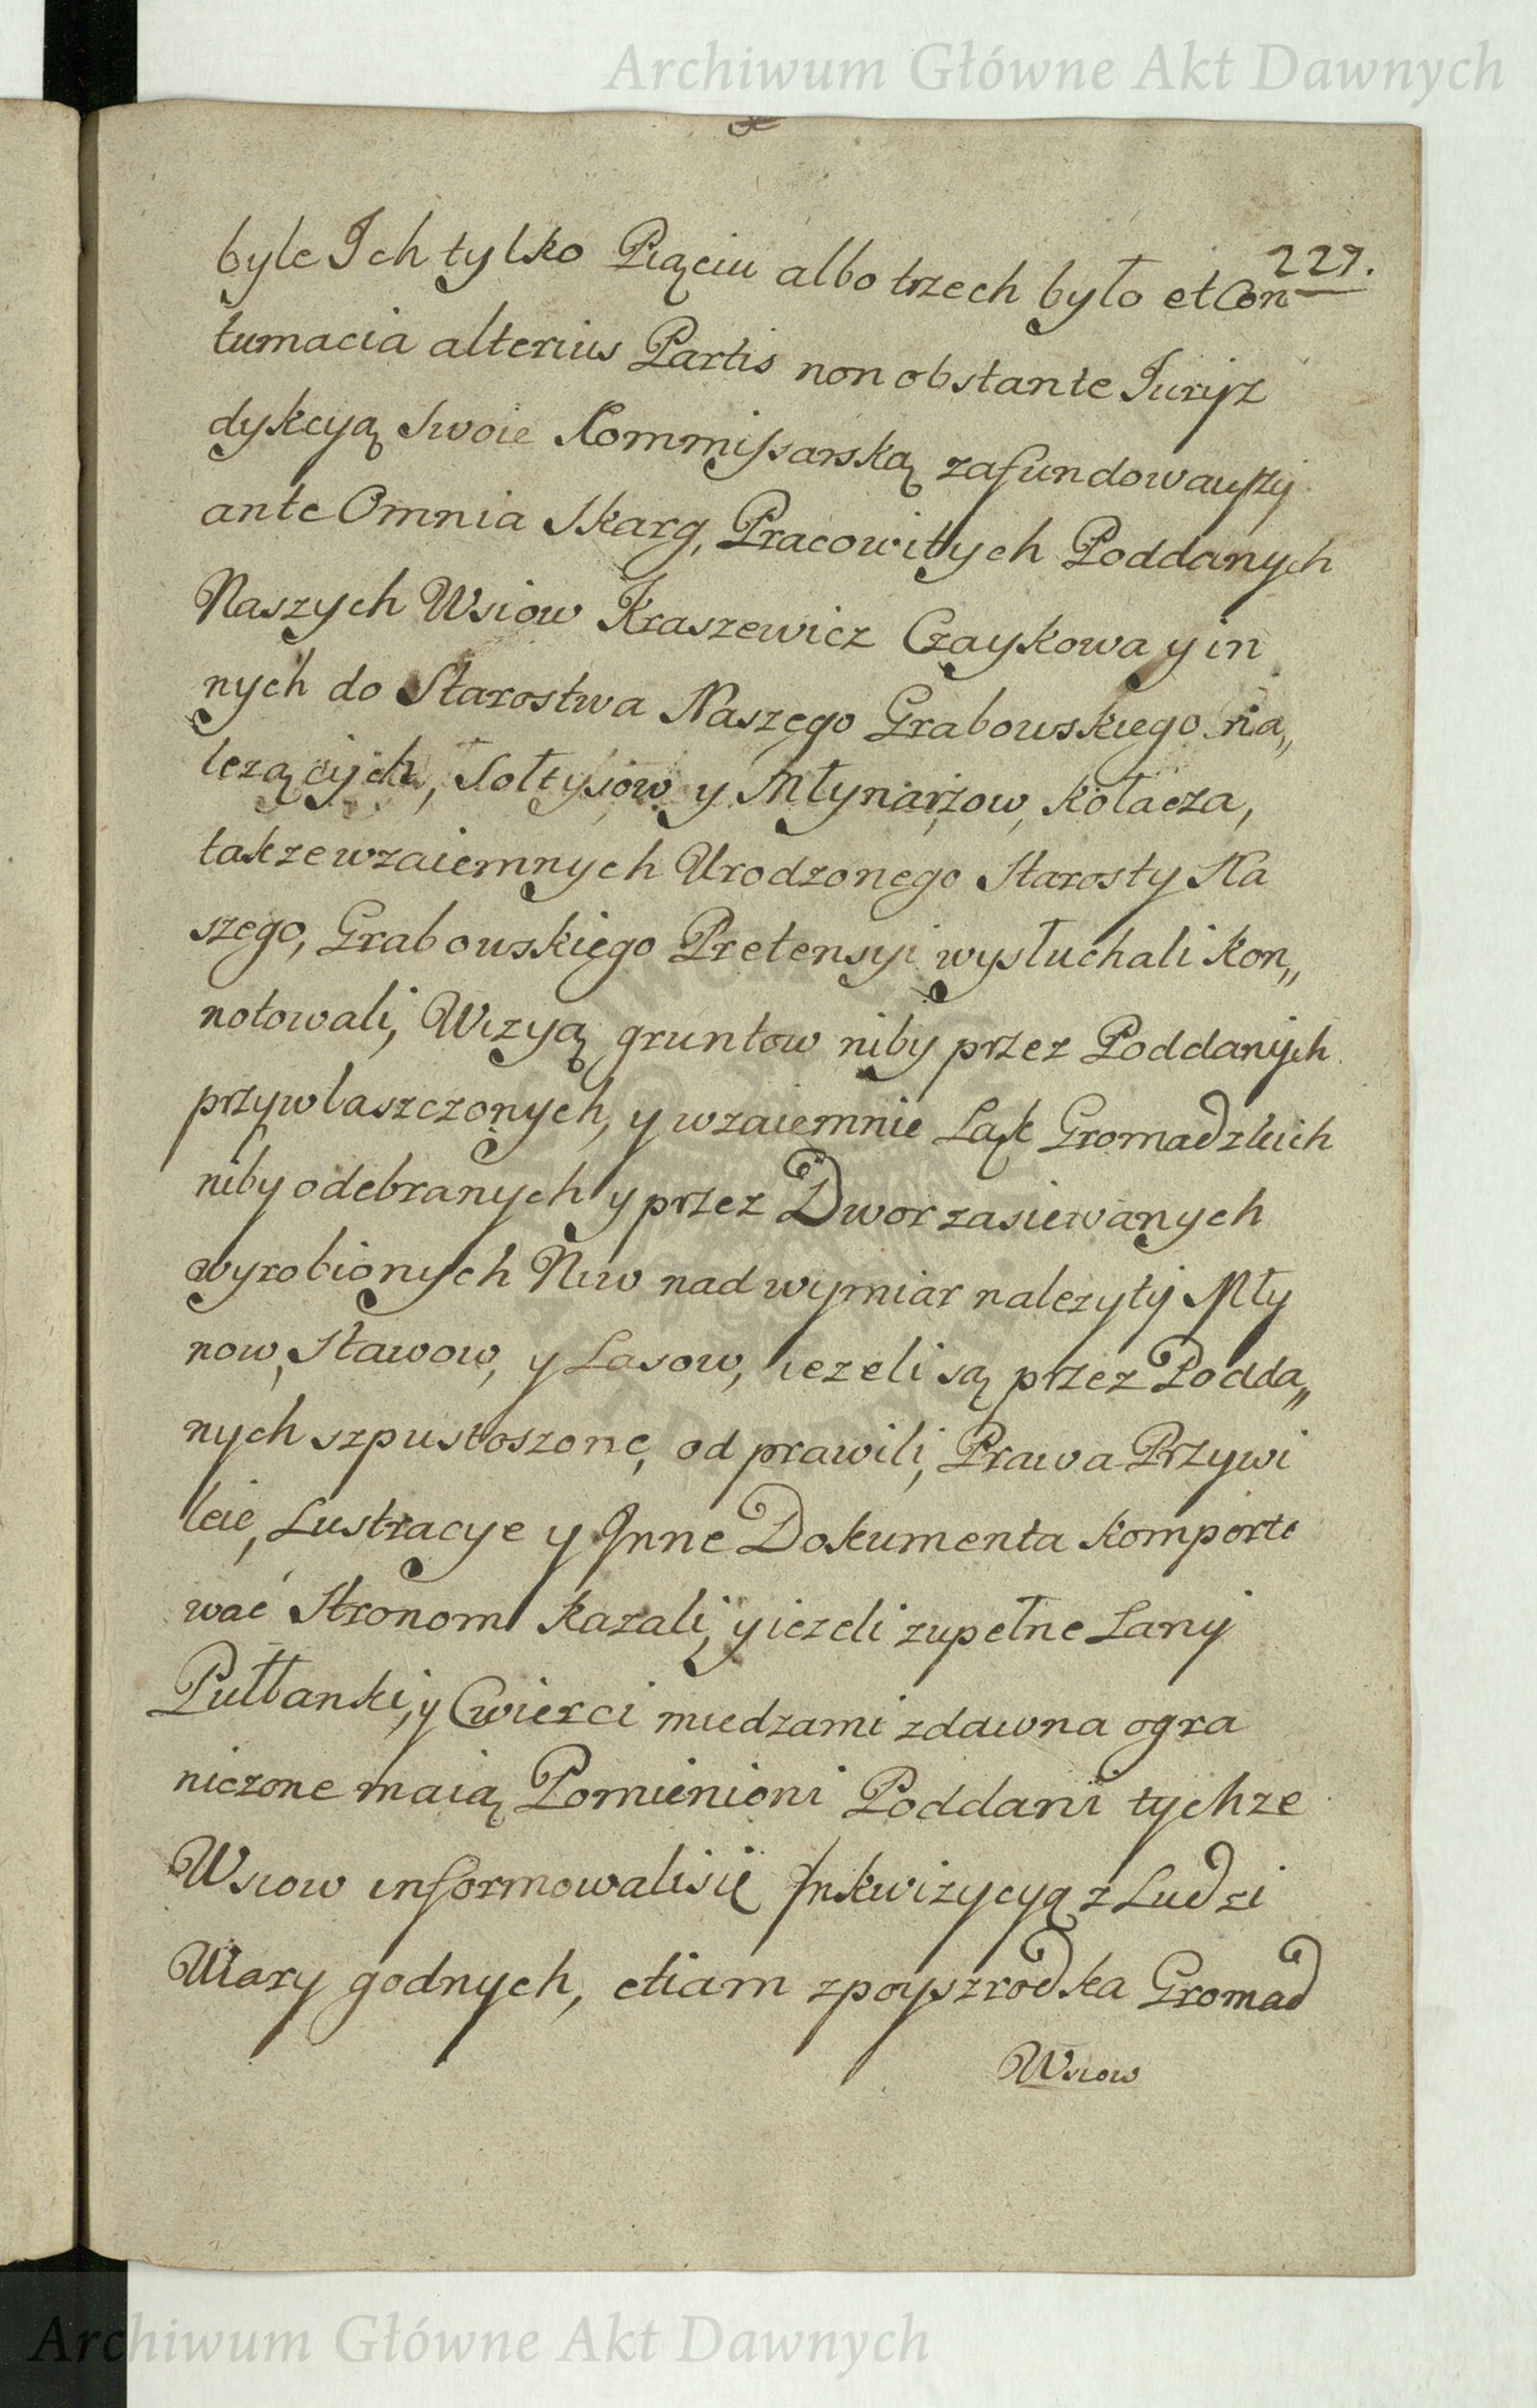 Archiwum Główne Akt Dawnych
227.
byle Ich tylko Piąciu albo trzech było et Con
tumacia alterius Partis non obstante Juryz
dykcyą Swoie Kommissarską zafundowawszy
ante Omnia Skarg, Pracowitych Poddanych
Naszych Wsiow Kraszewicz Czaykowa y in
nych do Starostwa Naszego Grabowskiego na„
lezących, Sołtysow y Młynarzow, Kołacza,
takze wzaiemnych Urodzonego Starosty Na
szego, Grabowskiego Pretensyi wysłuchali kon„
notowali, Wizyą gruntow niby przez Poddanych
przywlaszczonych, y wzaiemnie Łąk Gromadzkich
niby odebranych y przez Dwor zasiewanych
wyrobionych Niw nad wymiar nalezyty Mły
now, Stawow, y Lasow, iezeli są przez Podda„
nych szpustoszone, odprawili, Prawa Przywi
leie, Lustracye y Inne Dokumenta komporto
wać Stronom kazali, y iezeli zupełne Łany
Pułłanki, y Cwierci miedzami zdawna ogra
niczone maią Pomienioni Poddani tychze
Wsiow informowali się Inkwizycyą z Ludzi
Wiary godnych, etiam zpoyszrodka Gromad
Wsiow
Archiwum Główne Akt Dawnych